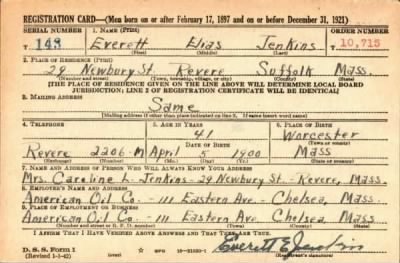 REGISTRATION CARD—(Men born on or after February 17, 1897 and on or before December 31, 1921)
SERIAL NUMBER 1. NAME (Print) ORDER NUMBER
T 143 Everett Elias Jenkins T 10,715
(First) (Middle) (Last)
2. PLACE OF RESIDENCE (Print)
29 Newbury St. Revere Suffolk Mass.
(Number and street) (Town, township, village, or city) (County) (State)
[THE PLACE OF RESIDENCE GIVEN ON THE LINE ABOVE WILL DETERMINE LOCAL BOARD
JURISDICTION; LINE 2 OF REGISTRATION CERTIFICATE WILL BE IDENTICAL]
3. MAILING ADDRESS
Same
[Mailing address if other than place indicated on line 2. If same insert word same]
4. TELEPHONE 5. AGE IN YEARS 6. PLACE OF BIRTH
41 Worcester
DATE OF BIRTH (Town or county)
Revere 2206-M April 5 1900 Mass
(Exchange) (Number) (Mo.) (Day) (Yr.) (State or country)
7. NAME AND ADDRESS OF PERSON WHO WILL ALWAYS KNOW YOUR ADDRESS
Mrs. Caroline L. Jenkins - 29 Newbury St - Revere, Mass.
8. EMPLOYER'S NAME AND ADDRESS
American Oil Co. - 111 Eastern Ave. Chelsea, Mass
9. PLACE OF EMPLOYMENT OR BUSINESS
American Oil Co. - 111 Eastern Ave Chelsea, Mass
(Number and street or R. F. D. number) (Town) (County) (State)
I AFFIRM THAT I HAVE VERIFIED ABOVE ANSWERS AND THAT THEY ARE TRUE.
D. S. S. Form 1
(Revised 1-1-42) GPO Everett E. Jenkins
(Registrant's signature)